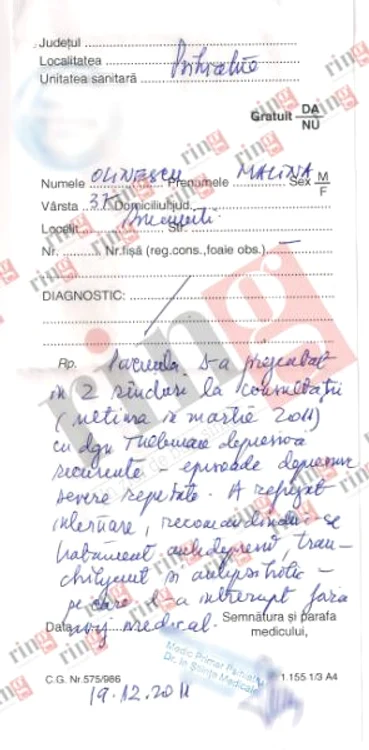 Județul
Localitatea
Unitatea sanitară
Psihiatrie
Gratuit DA
NU
Numele OLINESCU Prenumele MALINA Sex M
F
Vârsta 37 Domiciliul:jud.
Localit București Str.
Nr. Nr.fișă (reg.cons.,foaie obs.) —
DIAGNOSTIC:
Rp. Pacienta s-a prezentat
în 2 rînduri la consultații
(ultima în martie 2011)
cu dgn Tulburare depresivă
recurentă - episoade depresive
severe repetate. A refuzat
internare, recomandîndu-i-se
tratament antidepresiv, tran-
chilizant și antipsihotic -
pe care l-a întrerupt fără
aviz medical.
Data Semnătura și parafa
medicului,
Medic Primar Psihiatru
Dr. în Științe Medicale
C.G. Nr.575/986 1.155.1/3 A4
19.12.2011
ring